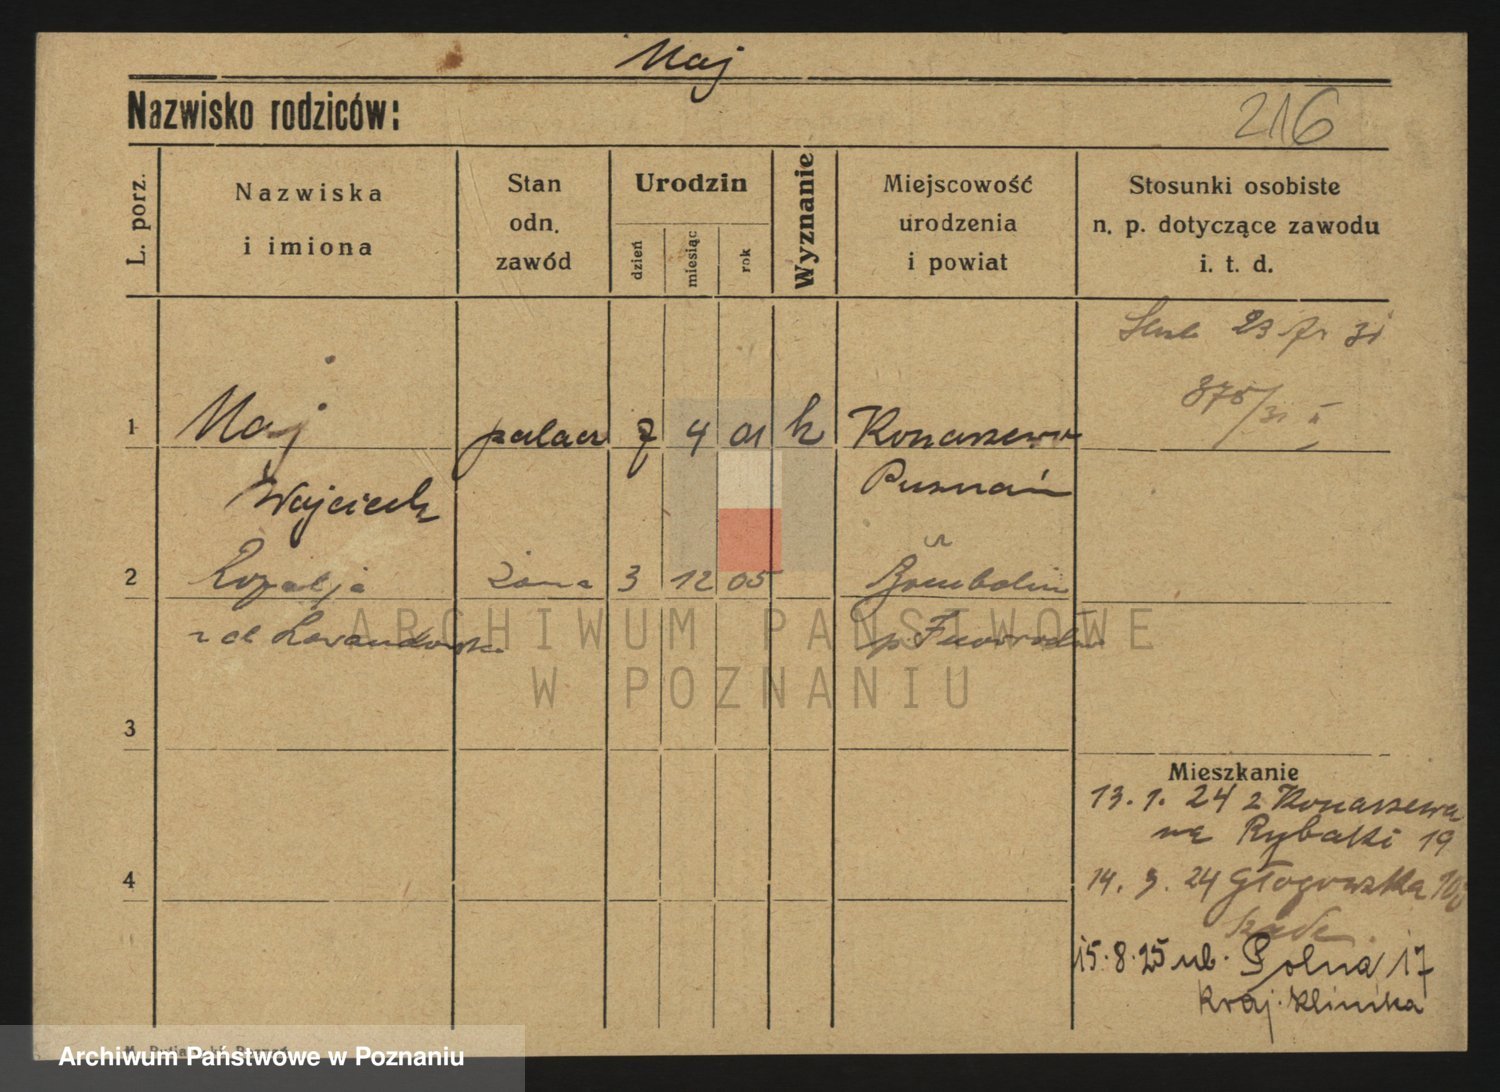 Maj
Nazwisko rodziców:
216
L. porz.
Nazwiska
i imiona
Stan
odn.
zawód
Urodzin
dzień
miesiąc
rok
Wyznanie
Miejscowość
urodzenia
i powiat
Stosunki osobiste
n. p. dotyczące zawodu
i. t. d.
23 31
1 Maj palacz 7 4 01 k Konarzewo
Wojciech Poznań
2 Rozalja żona 3 12 05
ARCHIWUM PAŃSTWOWE
W POZNANIU
3
Mieszkanie
13. 1. 24 z Konarzewa
na Rybaki 19
4
14. 3. 24 Głogowska
15. 8. 25 ul. Polna 17
Kraj. Klinika
Archiwum Państwowe w Poznaniu